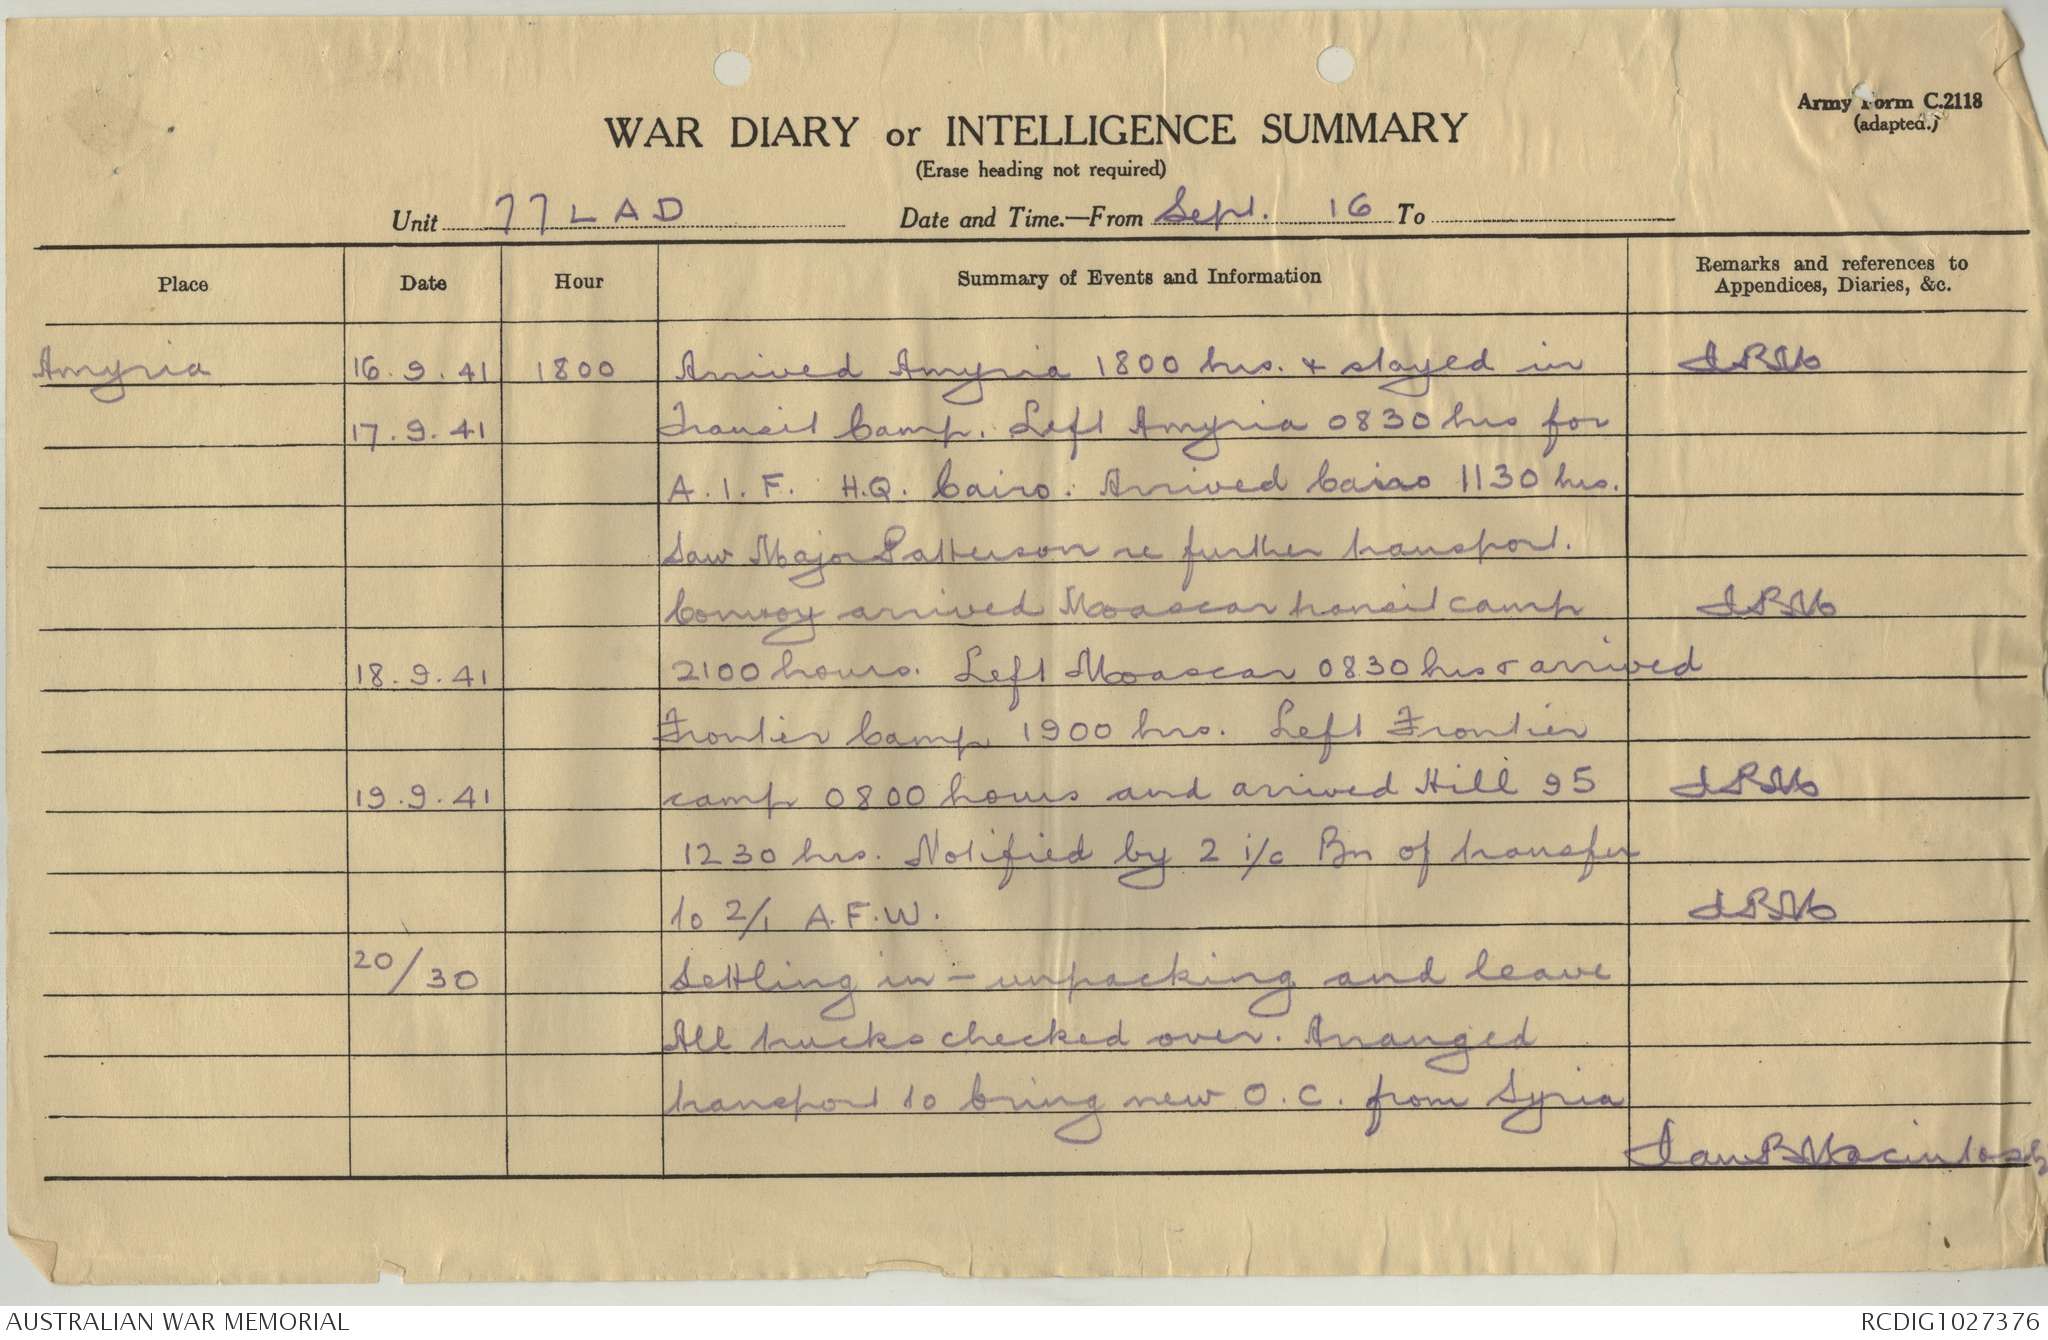 Army Form C.2118
(adapted.)
WAR DIARY or INTELLIGENCE SUMMARY
(Erase heading not required)
Unit 77 LAD Date and Time.—From Sept. 16 To
Place Date Hour Summary of Events and Information Remarks and references to Appendices, Diaries, &c.
Amyria 16.9.41 1800 Arrived Amyria 1800 hrs. + stayed in IBM
17.9.41 Transit Camp. Left Amyria 0830 hrs for
A.I.F. H.Q. Cairo. Arrived Cairo 1130 hrs.
Saw Major Patterson re further transport.
Convoy arrived Moascar transit camp IBM
18.9.41 2100 hours. Left Moascar 0830 hrs & arrived
Frontier Camp 1900 hrs. Left Frontier
19.9.41 camp 0800 hours and arrived Hill 95 IBM
1230 hrs. Notified by 2 i/c Bn of transfer
to 2/1 A.F.W. IBM
20/30 Settling in - unpacking and leave
All trucks checked over. Arranged
transport to bring new O.C. from Syria
Ian B Macintosh
AUSTRALIAN WAR MEMORIAL RCDIG1027376